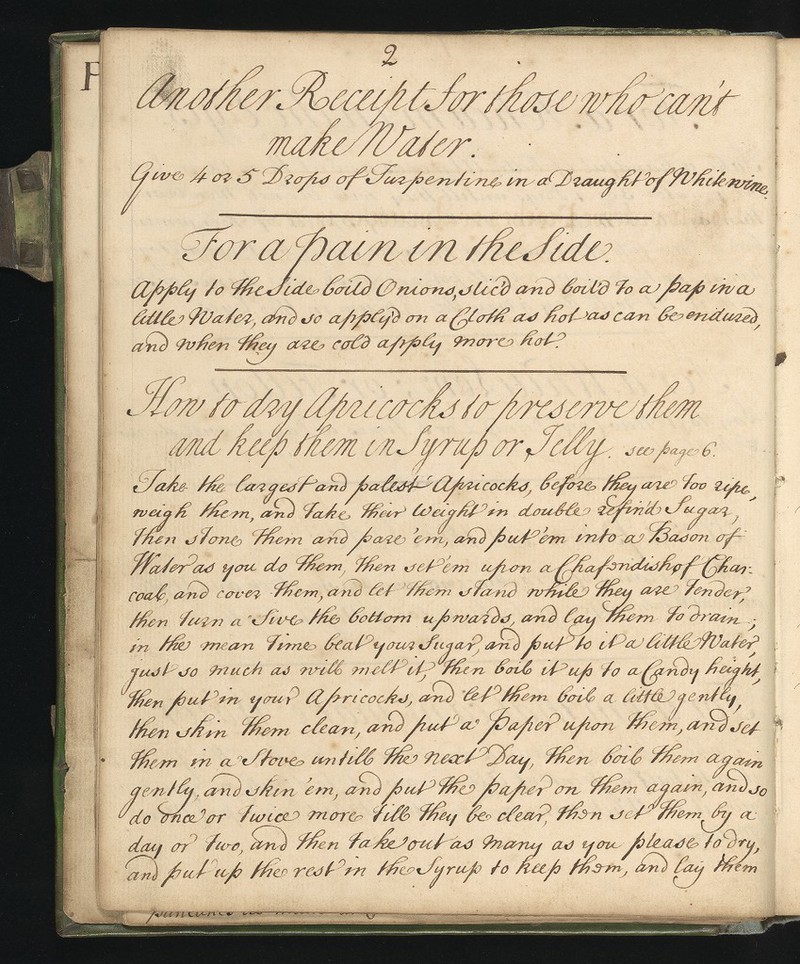 2
Another Receipt for those who can't
make Water.
Give 4 or 5 Drops of Turpentine in a Draught of White wine.
For a pain in the Side.
Apply to the Side boild Onions, slic'd and boil'd to a pap in a
little Water, and so apply'd on a Cloth as hot as can be endured,
and when they are cold apply more hot.
How to dry Apricocks to preserve them
and keep them in Syrup or Jelly. see page 6.
Take the largest and palest Apricocks, before they are too ripe,
weigh them, and take their weight in double refin'd Sugar,
then stone them and pare 'em, and put 'em into a Bason of
Water as you do them, then set 'em upon a Chafendish of Char-
coal, and cover them, and let them stand while they are tender,
then turn a Sive the bottom upwards, and lay them to drain;
in the mean time beat your Sugar, and put to it a little Water,
just so much as will melt it, then boil it up to a Candy height,
then put in your Apricocks, and let them boil a little gently,
then skin them clean, and put a Paper upon them, and set
them in a Stove untill the next Day, then boil them again
gently, and skin 'em, and put the paper on them again, and so
do once or twice more till they be clear, then set them by a
day or two, and then take out as many as you please to dry,
and put up the rest in the Syrup to keep them, and lay them
F